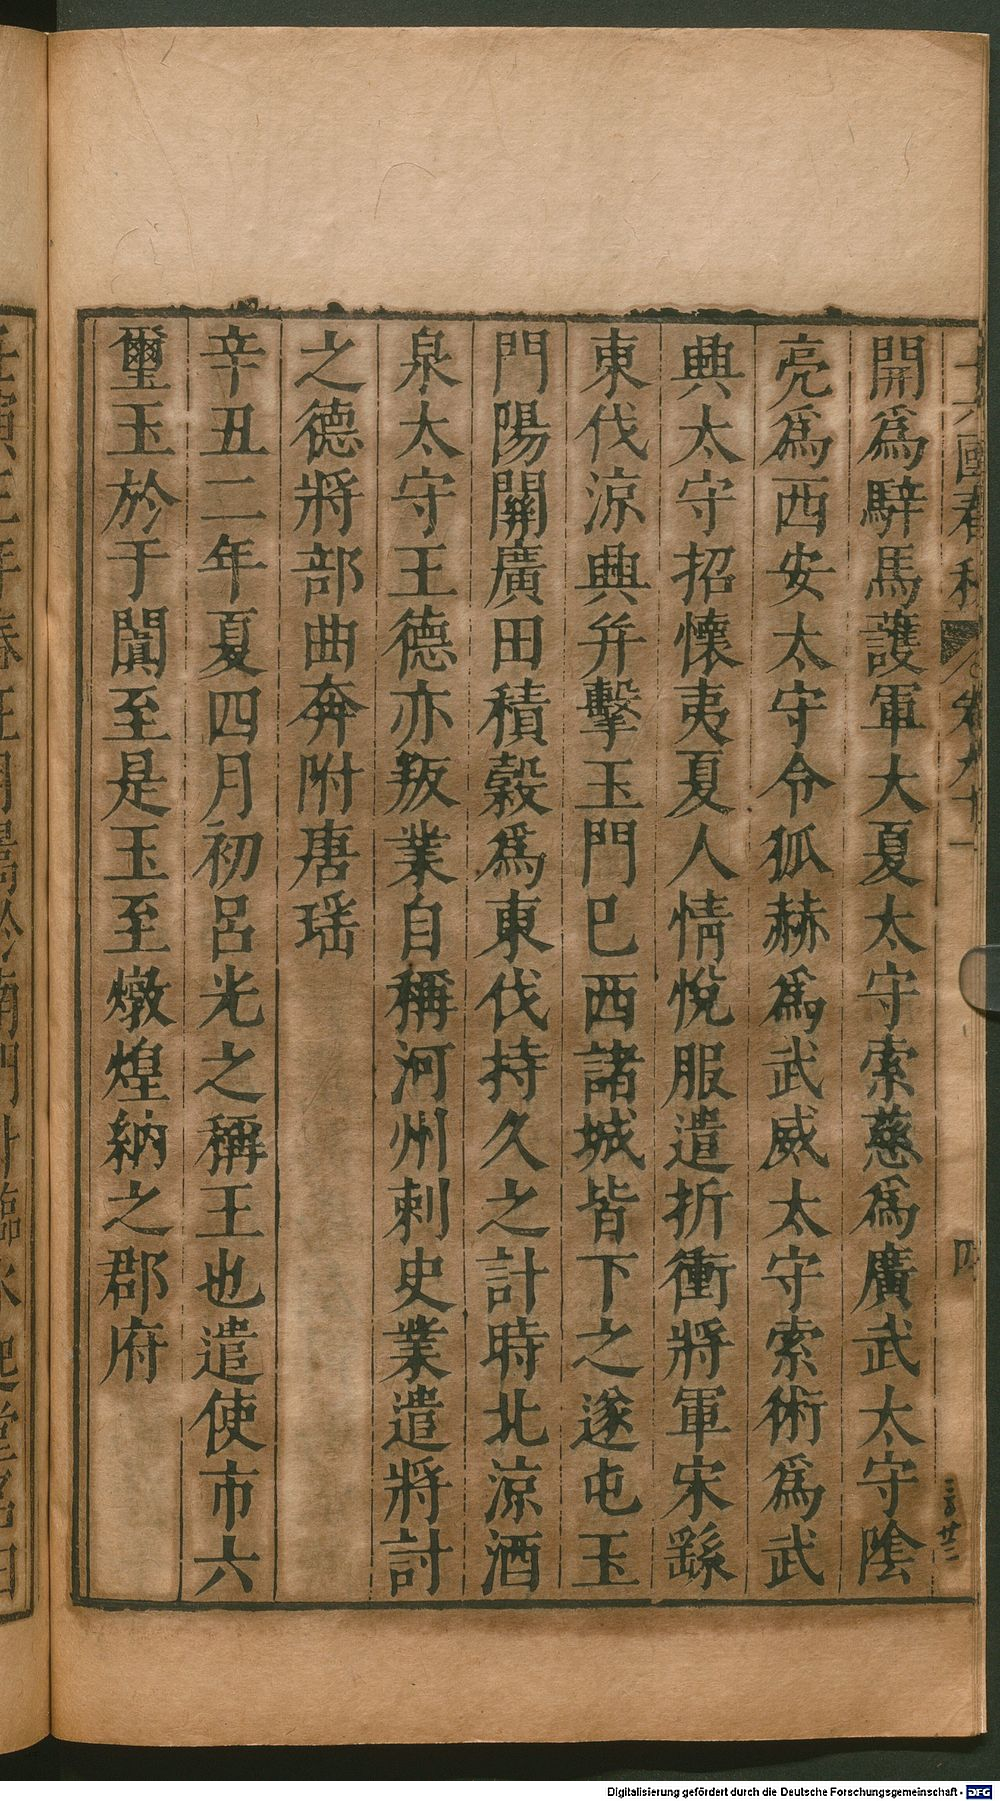 開爲騂馬護軍大夏太守索慈爲廣武太守陰
亮爲西安太守令狐赫爲武威太守索術爲武
興太守招懷夷夏人情悅服遣折衝將軍宋繇
東伐涼興并擊玉門已西諸城皆下之遂屯玉
門陽關廣田積穀爲東伐持久之計時北涼酒
泉太守王德亦叛業自稱河州刺史業遣將討
之德將部曲奔附唐瑶
辛丑二年夏四月初呂光之稱王也遣使市六
璽玉於于闐至是玉至燉煌納之郡府
Digitalisierung gefördert durch die Deutsche Forschungsgemeinschaft - DFG